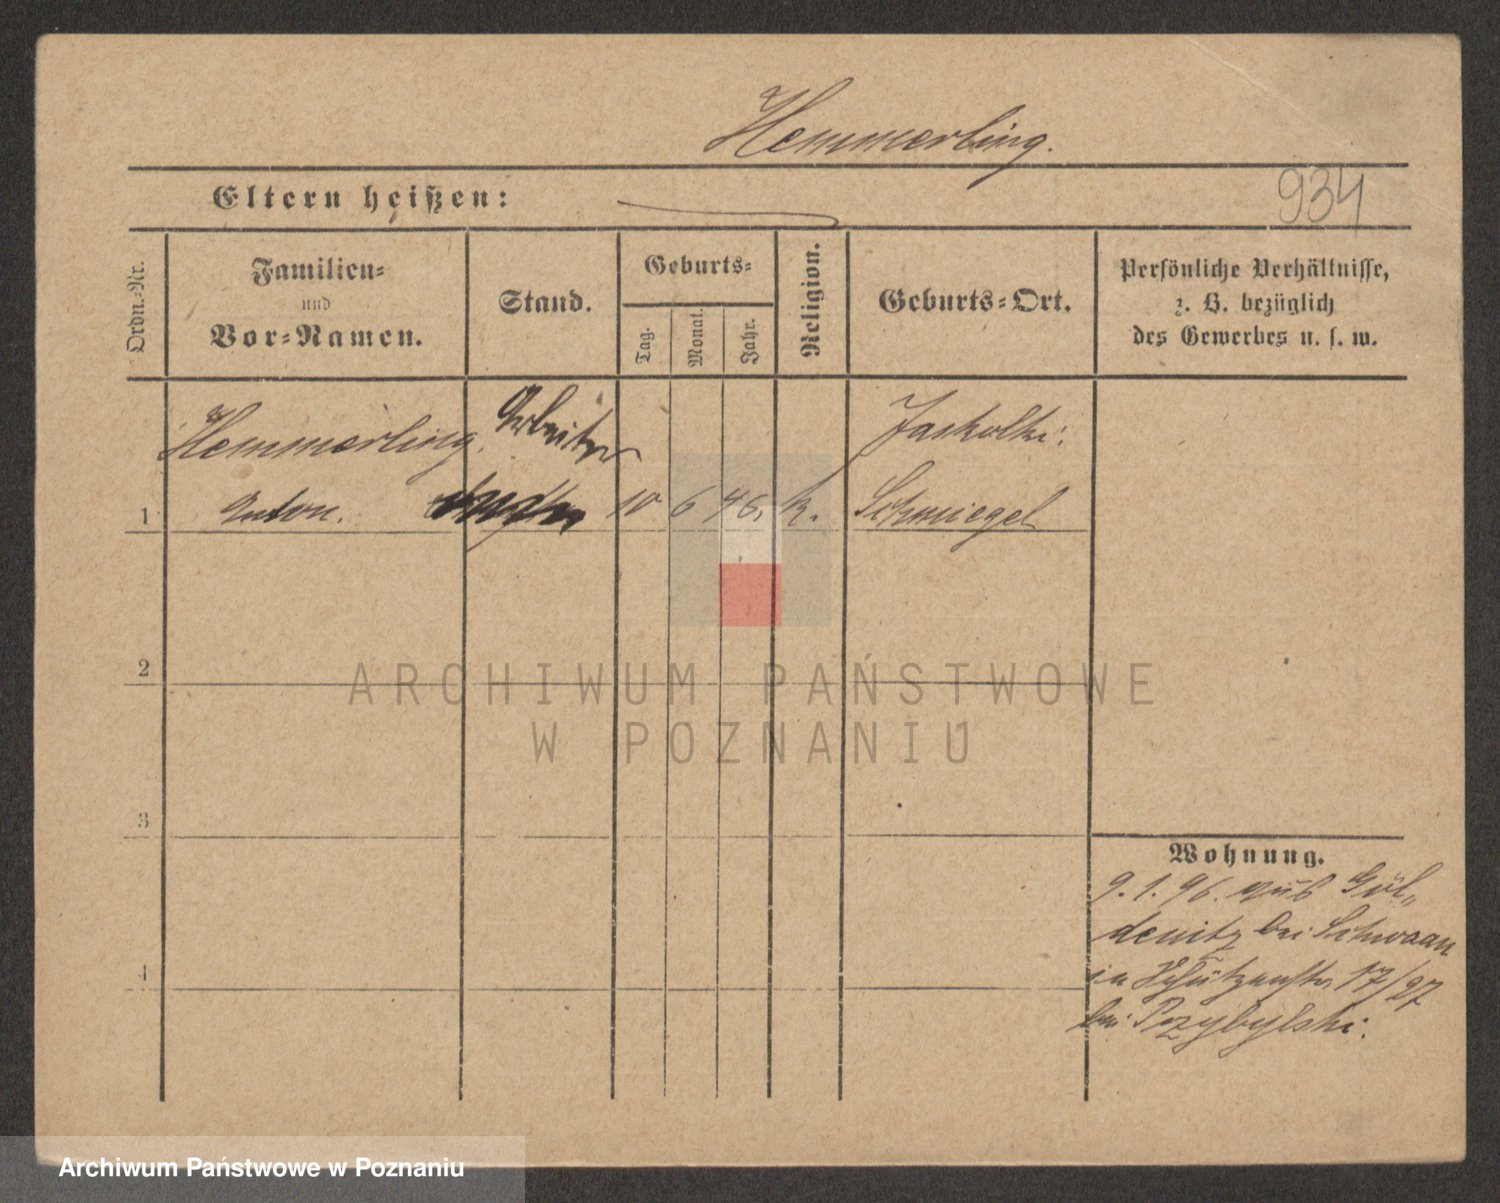 Hemmerling.
Eltern heißen:
934
Ordn.-Nr.
Familien-
und
Vor-Namen.
Stand.
Geburts-
Tag.
Monat.
Jahr.
Religion.
Geburts-Ort.
Persönliche Verhältnisse,
z. B. bezüglich
des Gewerbes u. s. w.
Hemmerling,
Arbeiter
Jaskolki.
1
Anton.
10
6
46.
k.
Schmiegel
2
ARCHIWUM PAŃSTWOWE
W POZNANIU
3
Wohnung.
9.1.96. aus Gül„
denitz bei Schwaan
in Schützenstr 17/27
bei Pzybylski.
4
Archiwum Państwowe w Poznaniu